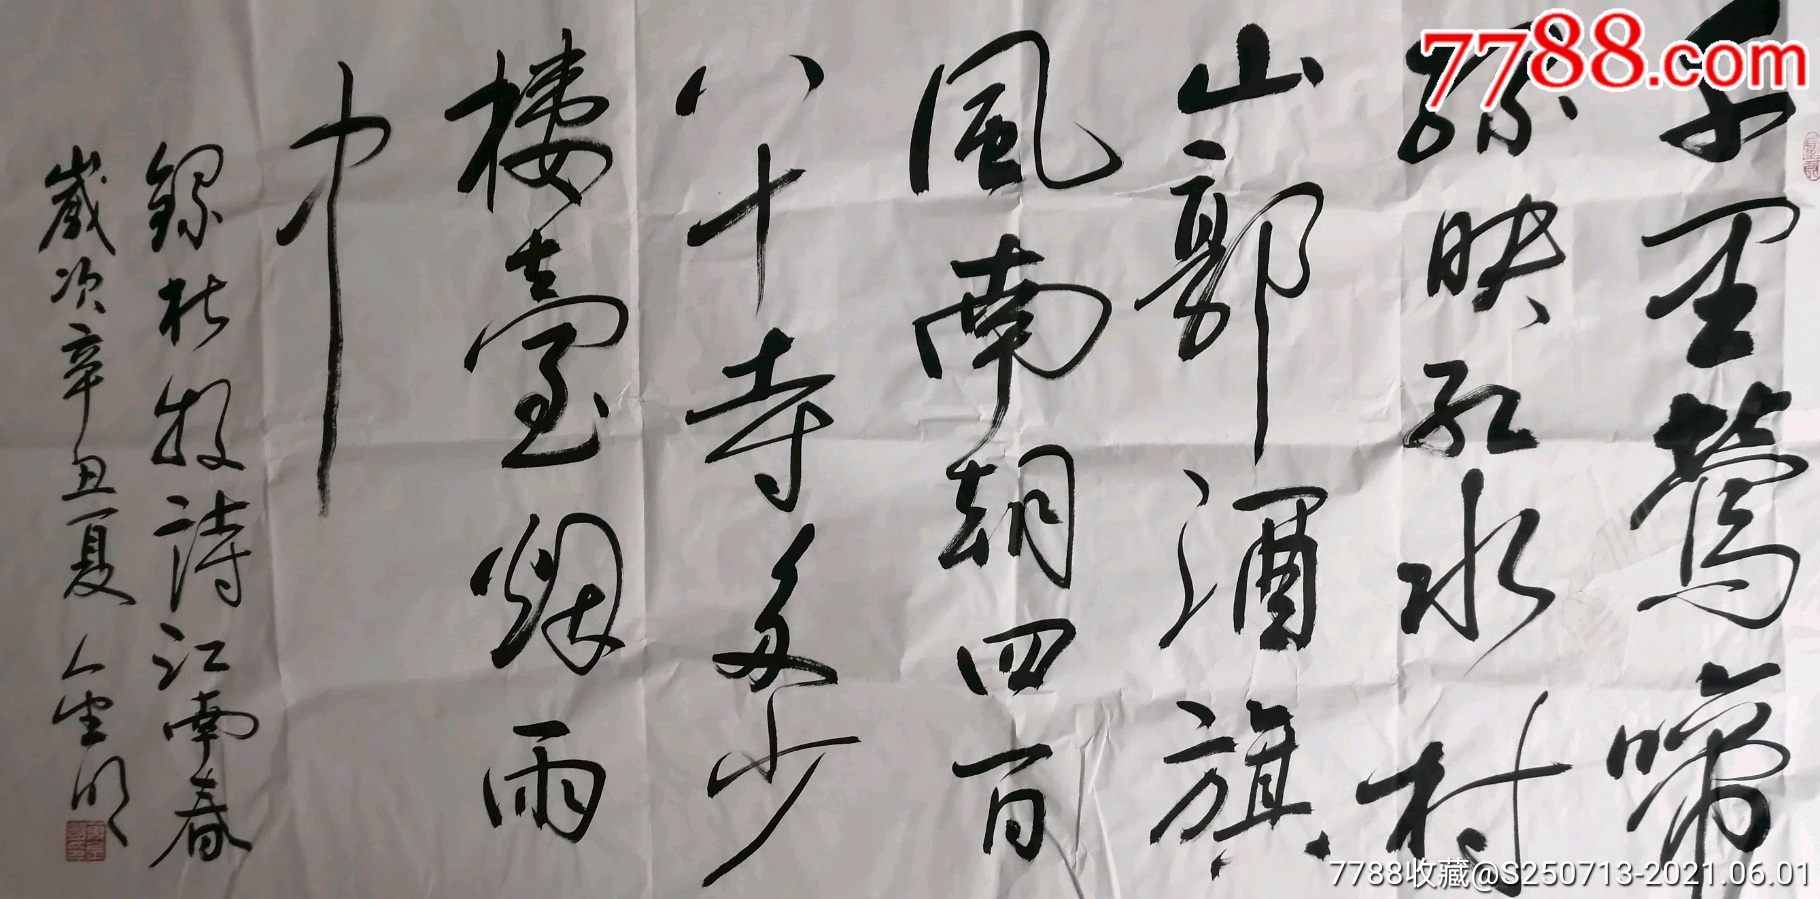 千里鶯啼
綠映紅水村
山郭酒旗
風南朝四百
八十寺多少
樓臺烟雨
中
錄杜牧詩江南春
歲次辛丑夏金明
7788.com
7788收藏@S250713-2021.06.01